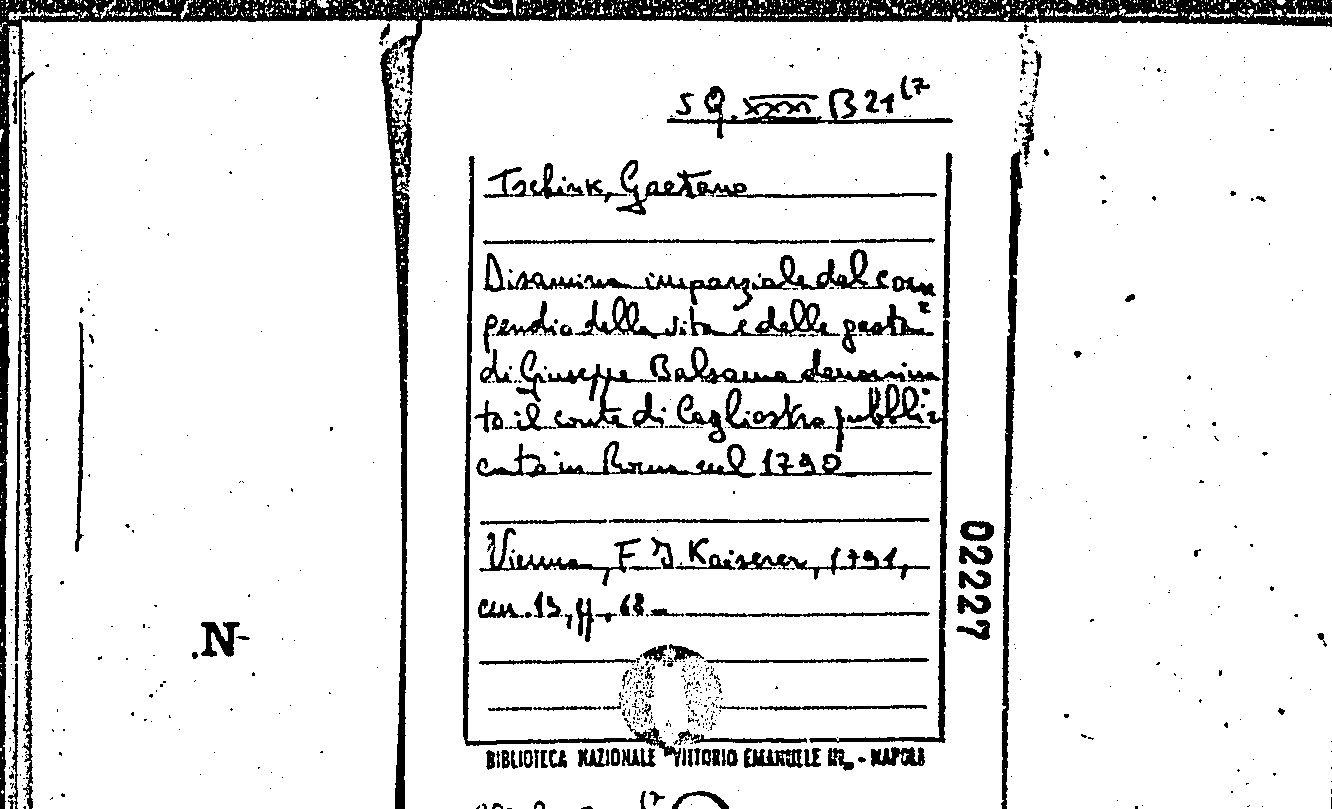 S Q. XXXXI B 21 (7
Tschink, Gaetano
Disamina imparziale del com
pendio della vita e delle gesta
di Giuseppe Balsamo denomina
to il conte di Cagliostro pubbli
cato in Roma nel 1790
Vienna, F. J. Kaiserer, 1791,
cm. 19, pp. 68
02227
.N-
BIBLIOTECA NAZIONALE "VITTORIO EMANUELE III„ - NAPOLI